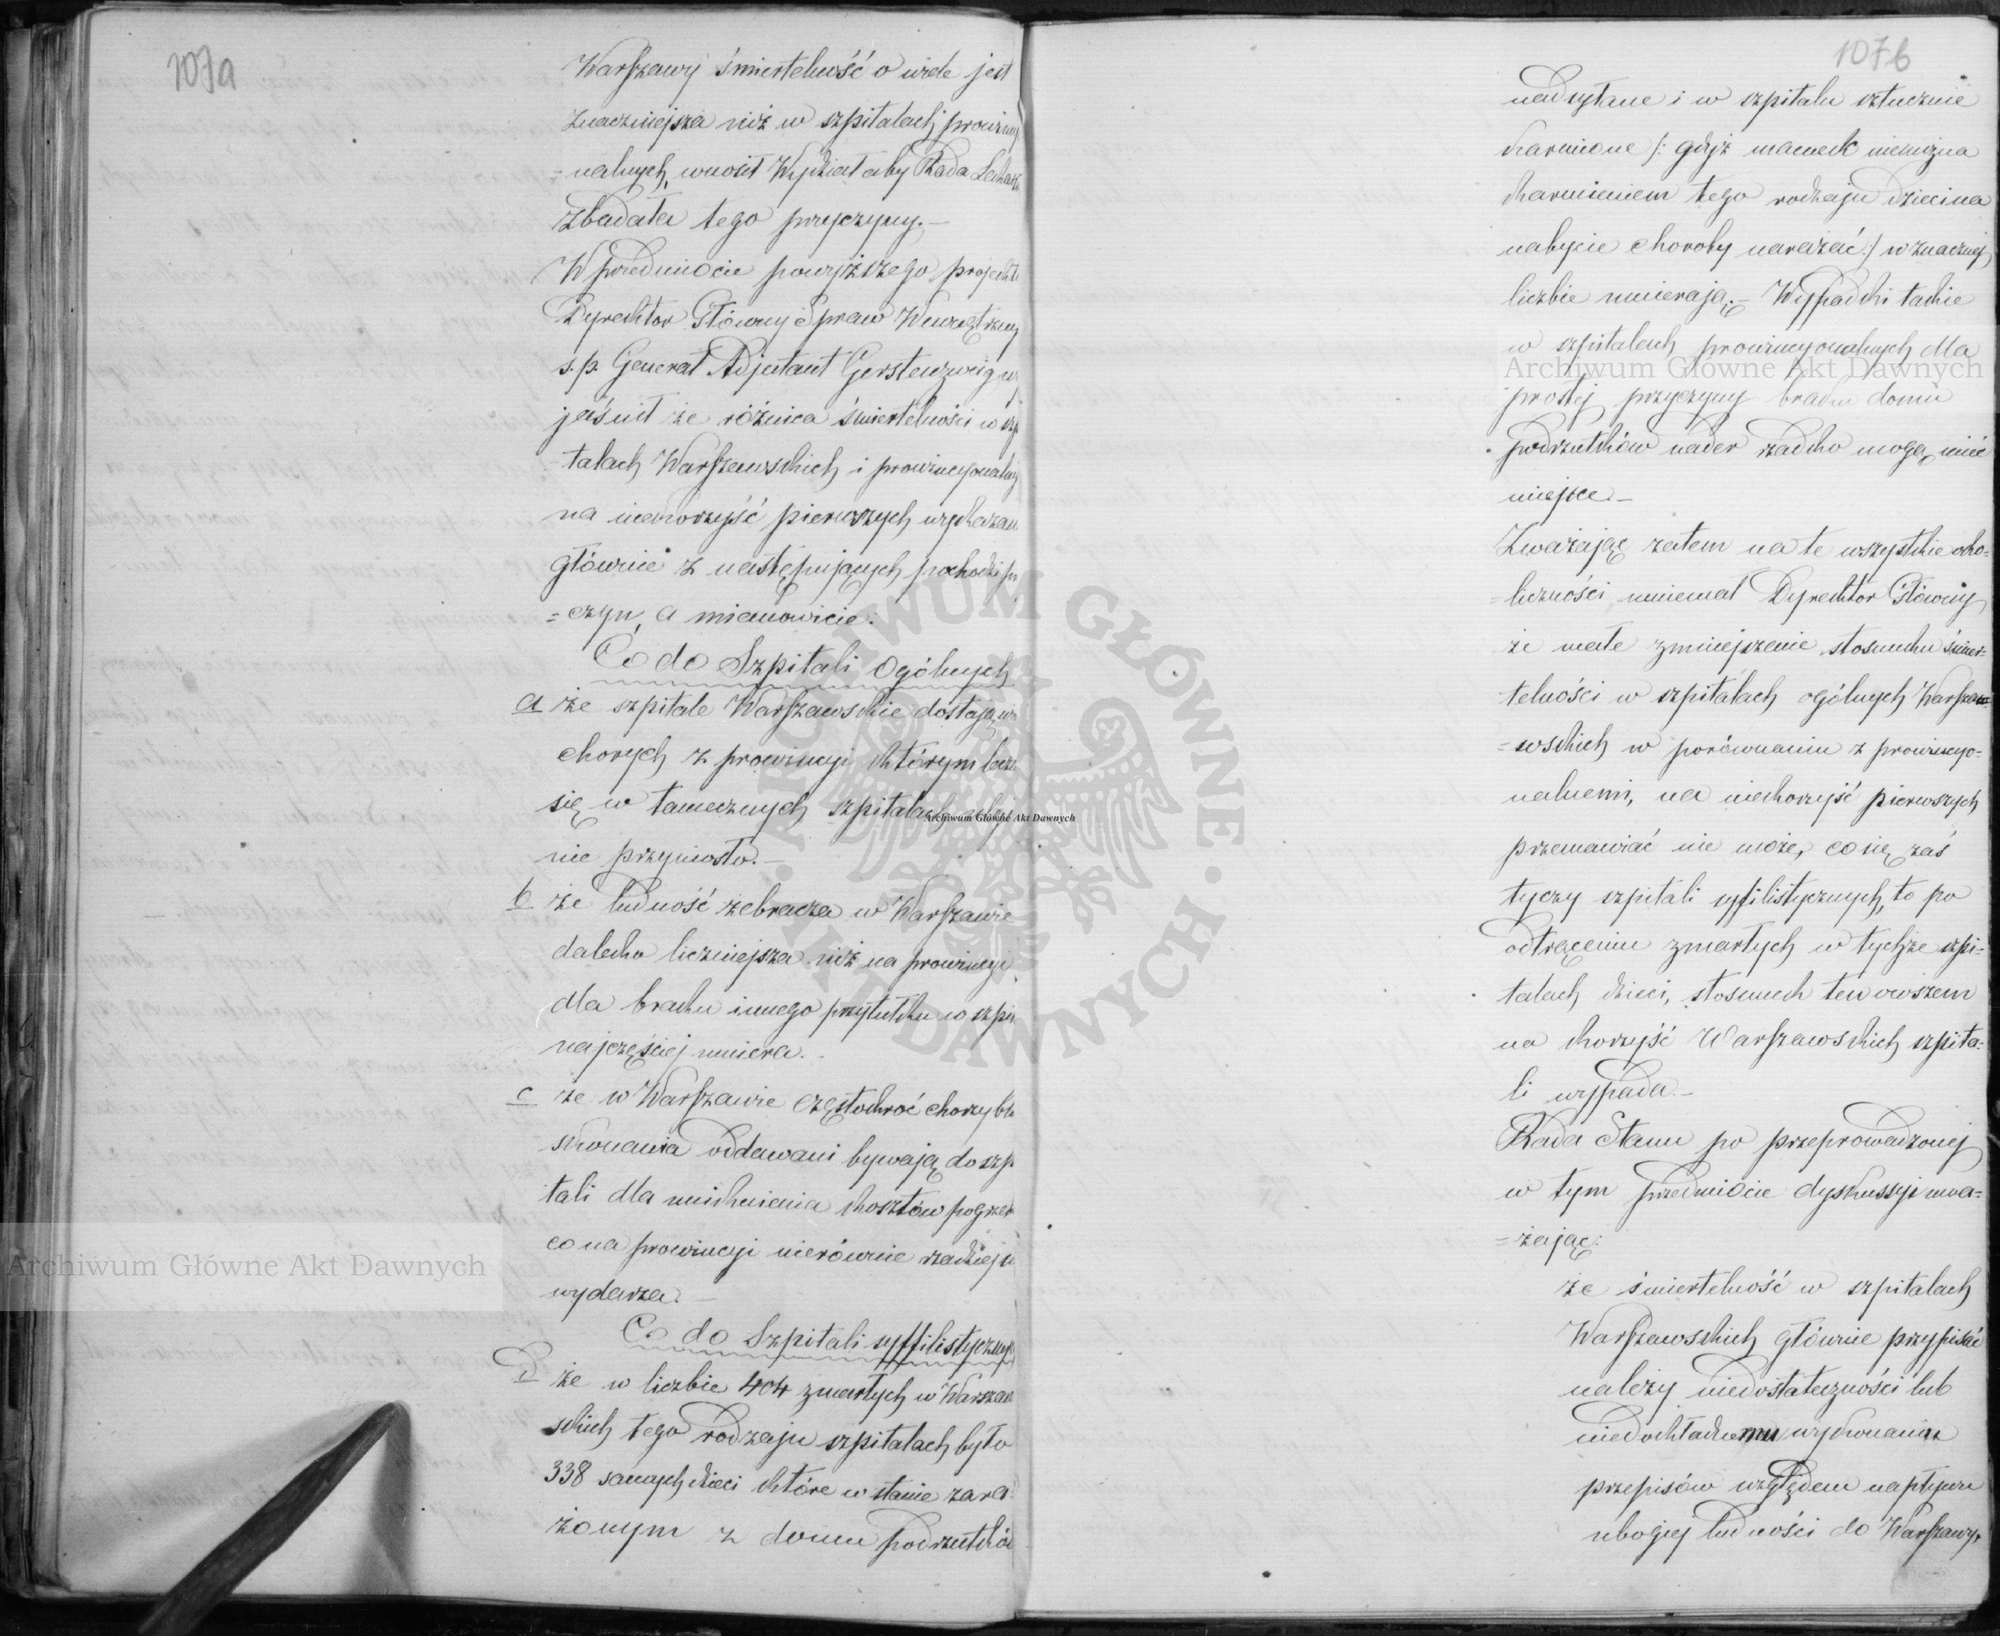 107a
Warszawy śmiertelność o wiele jest
znaczniejsza niż w szpitalach prowincy
=nalnych, wnosił Wydział aby Rada Lekars
zbadała tego przyczyny.—
W przedmiocie powyższego projektu
Dyrektor Główny Spraw Wewnętrzny
ś. p. Generał Adjutant Gerstenzweig wy
jaśnił że różnica śmiertelności w szp
talach Warszawskich i prowincyonalny
na niekorzyść pierwszych wykazan
głównie z następujących pochodzi pr
=czyn, a mianowicie:
Co do Szpitali Ogólnych
a że szpitale Warszawskie dostają
chorych z prowincyi którym lecz
się w tamecznych szpitalach ulgi
nie przyniosło.—
b że ludność żebracza w Warszawie
daleko liczniejsza niż na prowincyi,
dla braku innego przytułku w szpi
najczęściej umiera.—
c że w Warszawie częstokroć chorzy bli
skonania oddawani bywają do szp
tali dla uniknienia kosztów pogrzeb
co na prowincyi nierównie rzadziej
wydarza.—
Co do Szpitali syffilistyczny
D że w liczbie 404 zmarłych w Warszaw
skich tego rodzaju szpitalach było
338 samych dzieci które w stanie zara
żonym z domu podrzutków
107b
nadsyłane i w szpitalu sztucznie
karmione /: gdyż mamek niemożna
karmieniem tego rodzaju dzieci na
nabycie choroby narażać :/ w znacznej
liczbie umierają.— Wypadki takie
w szpitalach prowincyonalnych dla
prostej przyczyny braku domu
podrzutków nader rzadko mogą mieć
miejsce.—
Zważając zatem na te wszystkie oko-
=liczności mniemał Dyrektor Główny
że małe zmniejszenie stosunku śmier=
telności w szpitalach ogólnych Warsza
=wskich w porównaniu z prowincyo-
nalnemi, na niekorzyść pierwszych
przemawiać nie może, co się zaś
tyczy szpitali syfilistycznych, to po
odtrąceniu zmarłych w tychże szpi=
talach dzieci, stosunek ten owszem
na korzyść Warszawskich szpita=
li wypada.—
Rada Stanu po przeprowadzonej
w tym przedmiocie dyskussyi uwa=
=żając:
że śmiertelność w szpitalach
Warszawskich głównie przypisać
należy niedostateczności lub
niedokładnemu wykonaniu
przepisów względem napływu
ubogiej ludności do Warszawy,
Archiwum Główne Akt Dawnych
Archiwum Główne Akt Dawnych
Archiwum Główne Akt Dawnych
ARCHIWUM GŁÓWNE · AKT DAWNYCH ·